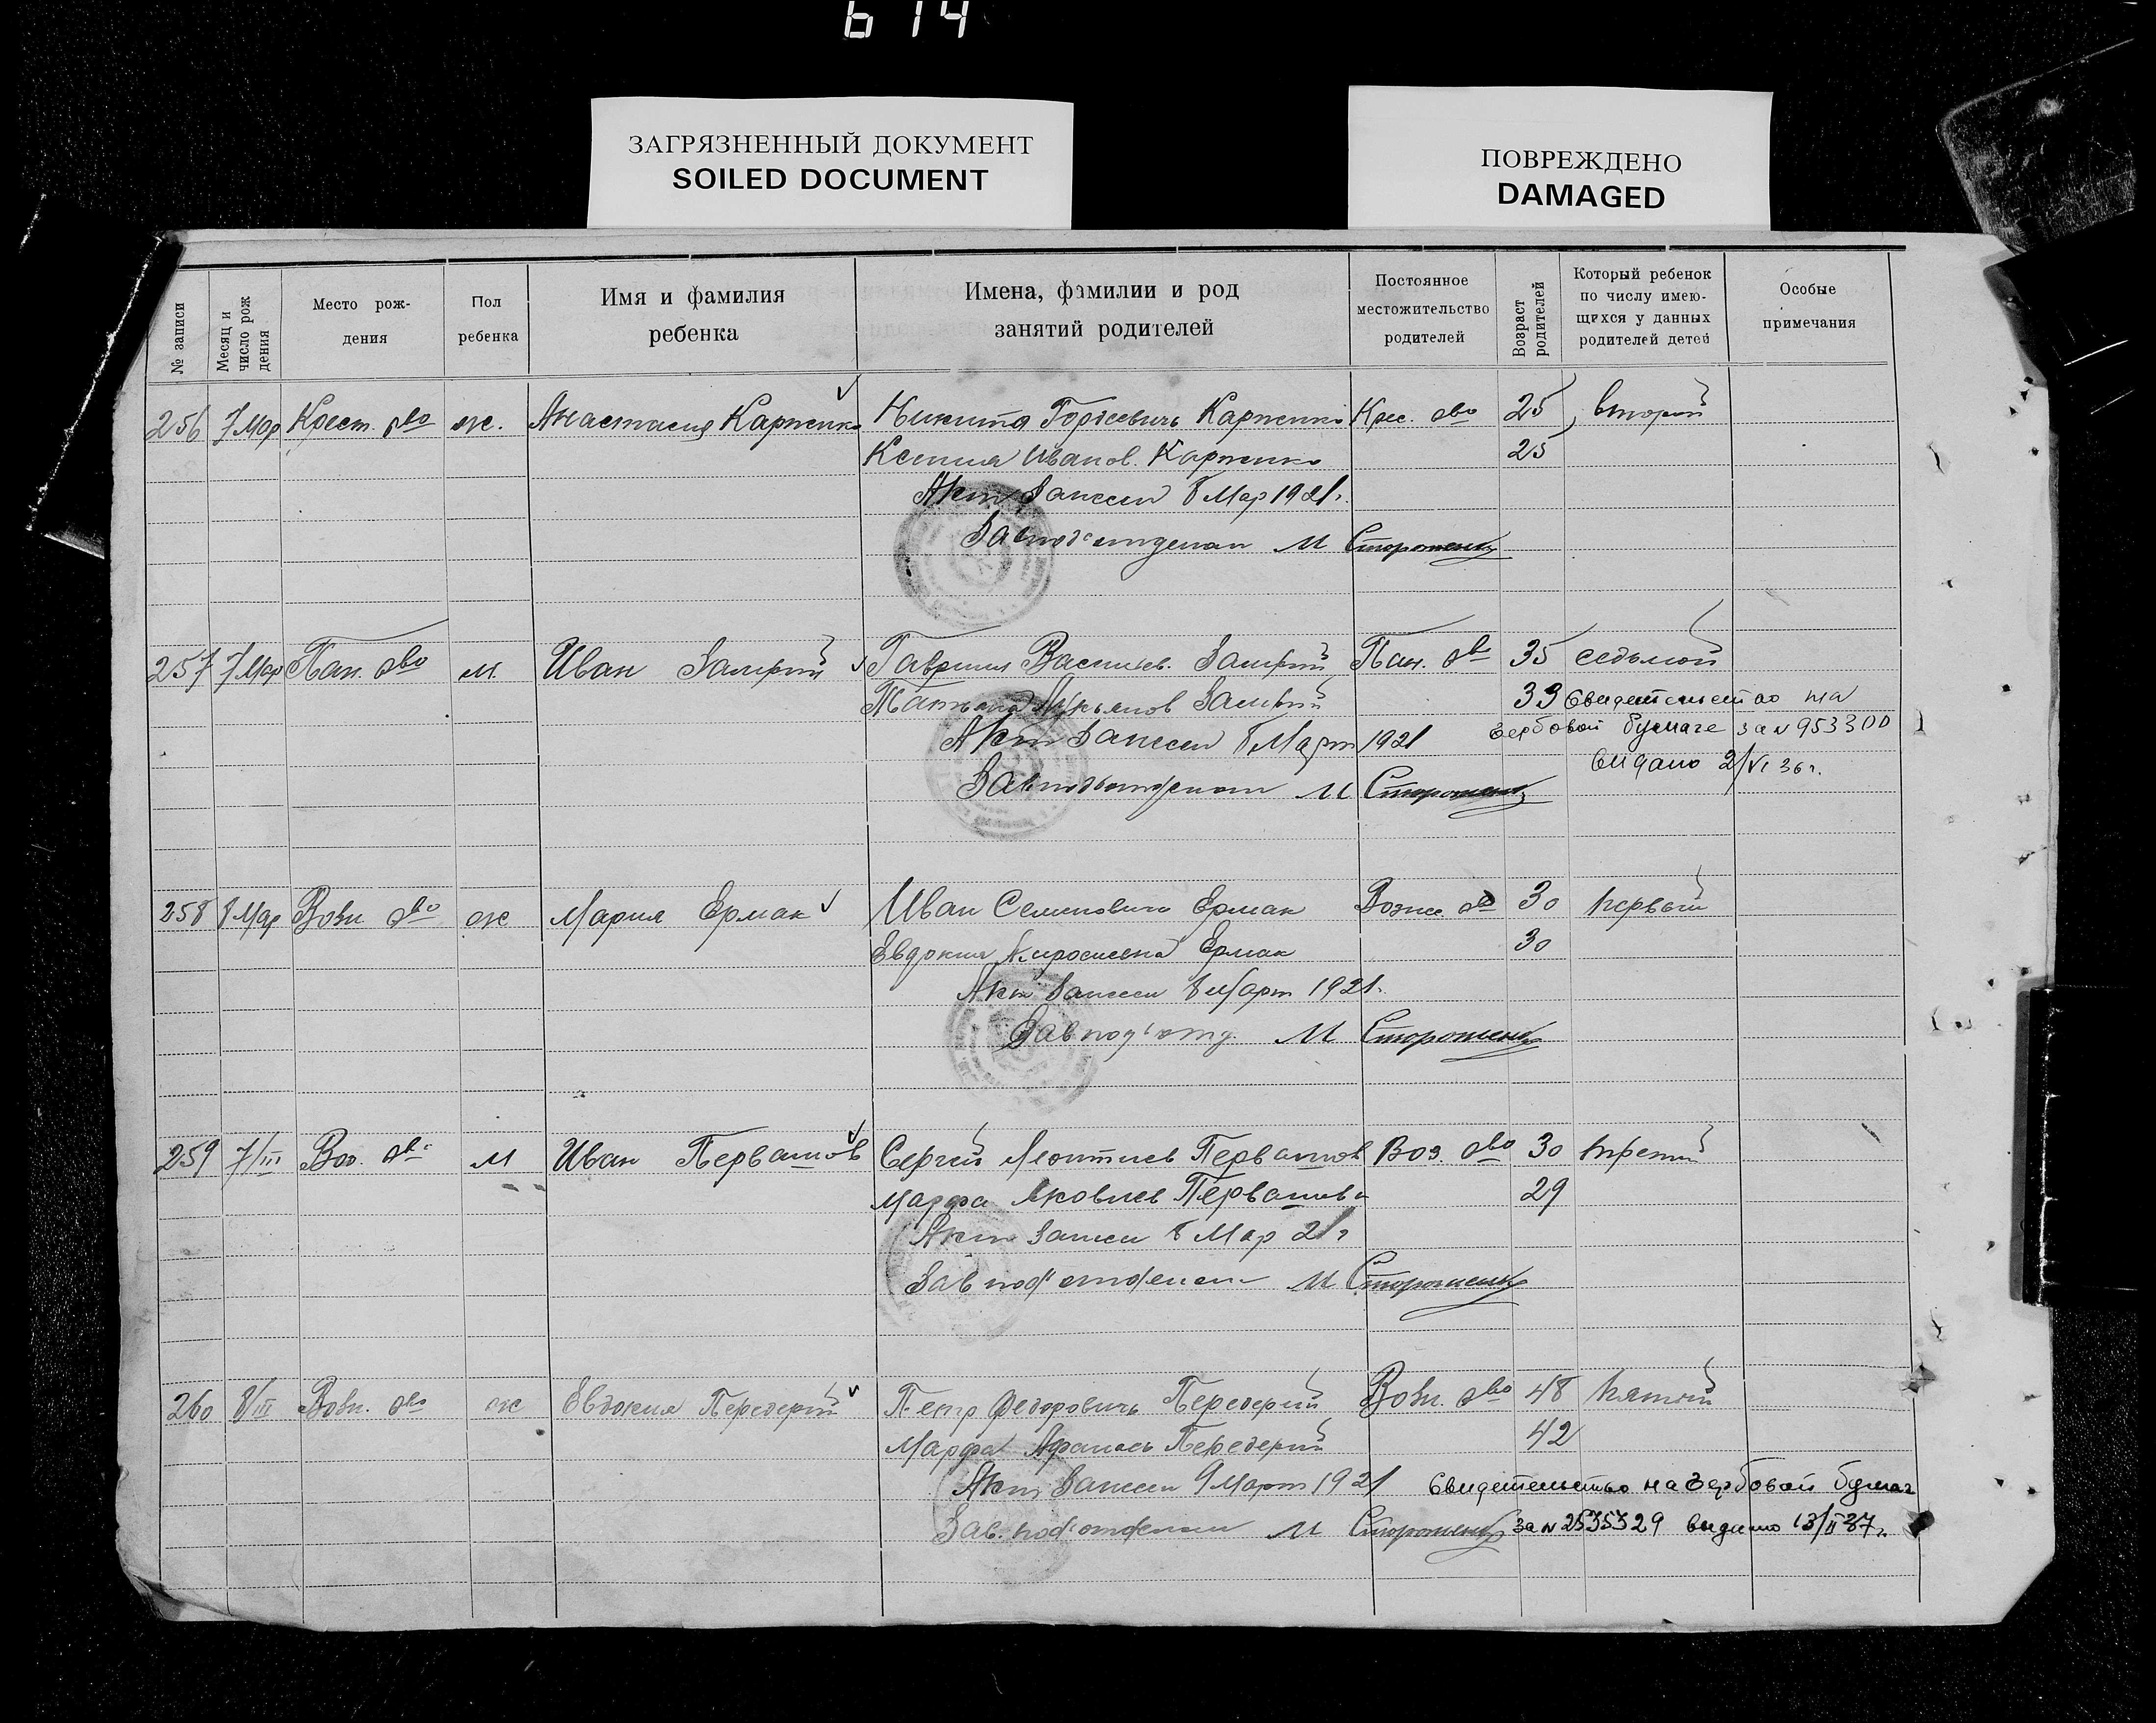 614
ЗАГРЯЗНЕННЫЙ ДОКУМЕНТ
SOILED DOCUMENT
ПОВРЕЖДЕНО
DAMAGED
№ записи
Месяц и число рож дения
Место рож-
дения
Пол
ребенка
Имя и фамилия
ребенка
Имена, фамилии и род
занятий родителей
Постоянное
местожительство
родителей
Возраст
родителей
Который ребенок
по числу имею-
щихся у данных
родителей детей
Особые
примечания
256 7 Мар Крест. о-во ж. Анастасия Карпенко Никита Гордеевичь Карпенко Крес. о-во 25 второй
Ксения Иванов. Карпенко 25
Акт записи 8 Мар 1921 г.
Завпод'отделом М Стороженко
257 7 Мар Пан. о-во м. Иван Пан. о-во 35 седьмой
33 Свидетельство на
гербовой бумаге за № 953300
Акт записи 8 Март 1921
видано 2/VI 36 г.
Завподъотделом М Стороженко
258 8 Мар Возн о-во ж Мария Ермак Иван Семенович Ермак Вознес. о-во 30 первый
Евдокия Ермак 30
Акт записи 8 Март 1921 г.
Завпод'отд. М Стороженко
259 7/III Воз. о-во м Иван Перваш​ов Сергей Леонтиев Первашов Воз. о-во 30 третий
Марфа Яковлев Первашова 29
Акт записи 8 Мар 21 г
Завпод'отделом М Стороженко
260 8/III Возн. о-во ж Евдокия Передерий Петр Федоровичь Передерий Возн. о-во 48 пятый
Марфа Афанась Передерий 42
Акт записи 9 Март 1921 Свидетельство на гербовой бумаг
Зав. под'отделом М Стороженко за № 2535329 видано 13/II 37 г.